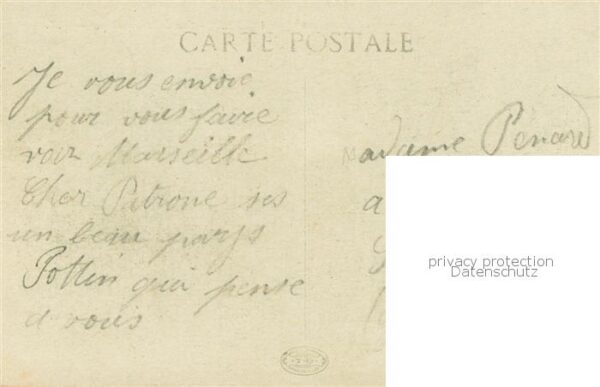 CARTE POSTALE
Je vous envoie
pour vous faire
voir Marseille
Cher Patrone ses
un beau pays
Pottin qui pense
a vous
Madame Penard
a
privacy protection
Datenschutz